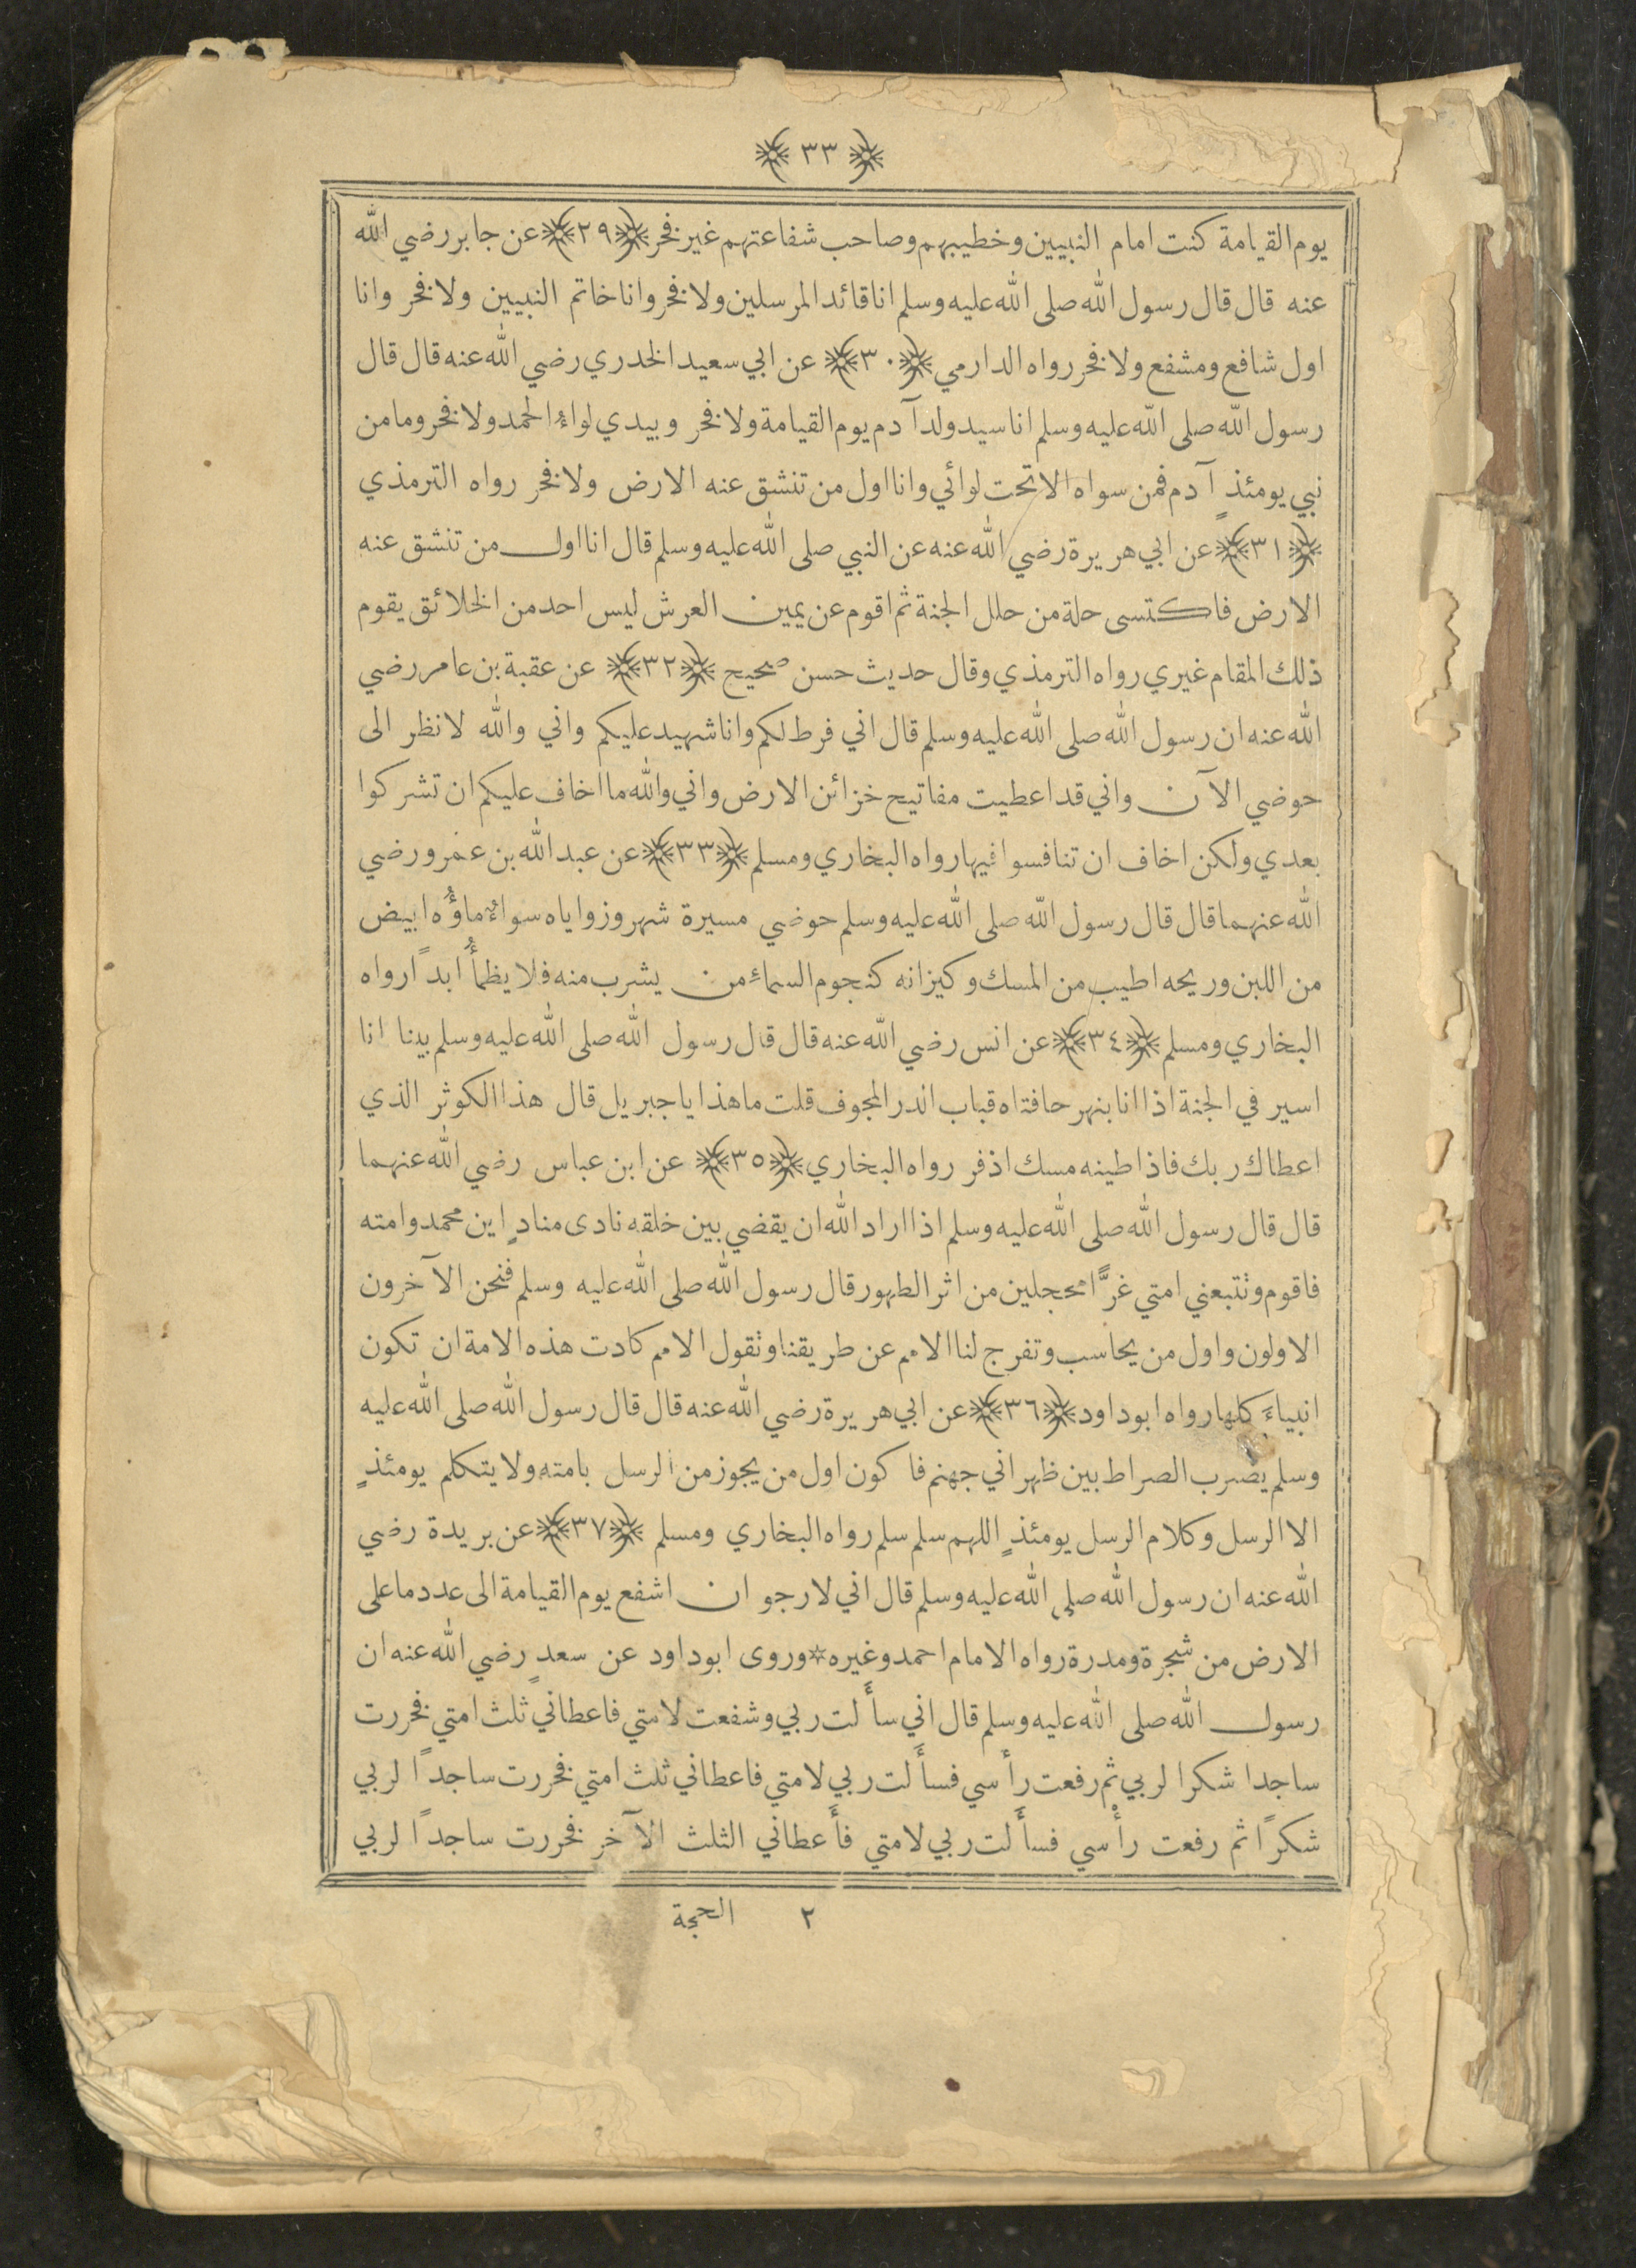 ﴿ ٣٣ ﴾
يوم القيامة كنت امام النبيين وخطيبهم وصاحب شفاعتهم غير فخر ﴿٢٩﴾ عن جابر رضي الله
عنه قال قال رسول الله صلى الله عليه وسلم انا قائد المرسلين ولا فخر وانا خاتم النبيين ولا فخر وانا
اول شافع ومشفع ولا فخر رواه الدارمي ﴿٣٠﴾ عن ابي سعيد الخدري رضي الله عنه قال قال
رسول الله صلى الله عليه وسلم انا سيد ولد آدم يوم القيامة ولا فخر وبيدي لواء الحمد ولا فخر وما من
نبي يومئذٍ آدم فمن سواه الا تحت لوائي وانا اول من تنشق عنه الارض ولا فخر رواه الترمذي
﴿٣١﴾ عن ابي هريرة رضي الله عنه عن النبي صلى الله عليه وسلم قال انا اول من تنشق عنه
الارض فاكتسى حلة من حلل الجنة ثم اقوم عن يمين العرش ليس احد من الخلائق يقوم
ذلك المقام غيري رواه الترمذي وقال حديث حسن صحيح ﴿٣٢﴾ عن عقبة بن عامر رضي
الله عنه ان رسول الله صلى الله عليه وسلم قال اني فرط لكم وانا شهيد عليكم واني والله لانظر الى
حوضي الآن واني قد اعطيت مفاتيح خزائن الارض واني والله ما اخاف عليكم ان تشركوا
بعدي ولكن اخاف ان تنافسوا فيها رواه البخاري ومسلم ﴿٣٣﴾ عن عبد الله بن عمرو رضي
الله عنهما قال قال رسول الله صلى الله عليه وسلم حوضي مسيرة شهر وزواياه سواءٌ ماؤُه ابيض
من اللبن وريحه اطيب من المسك وكيزانه كنجوم السماء من يشرب منه فلا يظمأُ ابداً رواه
البخاري ومسلم ﴿٣٤﴾ عن انس رضي الله عنه قال قال رسول الله صلى الله عليه وسلم بينا انا
اسير في الجنة اذا انا بنهر حافتاه قباب الدر المجوف قلت ما هذا يا جبريل قال هذا الكوثر الذي
اعطاك ربك فاذا طينه مسك اذفر رواه البخاري ﴿٣٥﴾ عن ابن عباس رضي الله عنهما
قال قال رسول الله صلى الله عليه وسلم اذا اراد الله ان يقضي بين خلقه نادى منادٍ اين محمد وامته
فاقوم وتتبعني امتي غرًّا محجلين من اثر الطهور قال رسول الله صلى الله عليه وسلم فنحن الآخرون
الاولون واول من يحاسب وتفرج لنا الامم عن طريقنا وتقول الامم كادت هذه الامة ان تكون
انبياءَ كلها رواه ابو داود ﴿٣٦﴾ عن ابي هريرة رضي الله عنه قال قال رسول الله صلى الله عليه
وسلم يضرب الصراط بين ظهراني جهنم فاكون اول من يجوز من الرسل بامته ولا يتكلم يومئذٍ
الا الرسل وكلام الرسل يومئذٍ اللهم سلم سلم رواه البخاري ومسلم ﴿٣٧﴾ عن بريدة رضي
الله عنه ان رسول الله صلى الله عليه وسلم قال اني لارجو ان اشفع يوم القيامة الى عدد ما على
الارض من شجرة ومدرة رواه الامام احمد وغيره * وروى ابو داود عن سعدٍ رضي الله عنه ان
رسول الله صلى الله عليه وسلم قال اني سأَلت ربي وشفعت لامتي فاعطاني ثلث امتي فخررت
ساجدا شكرا لربي ثم رفعت رأسي فسأَلت ربي لامتي فاعطاني ثلث امتي فخررت ساجداً لربي
شكراً ثم رفعت رأْسي فسأَلت ربي لامتي فأَعطاني الثلث الآخر فخررت ساجداً لربي
٢ الحجة